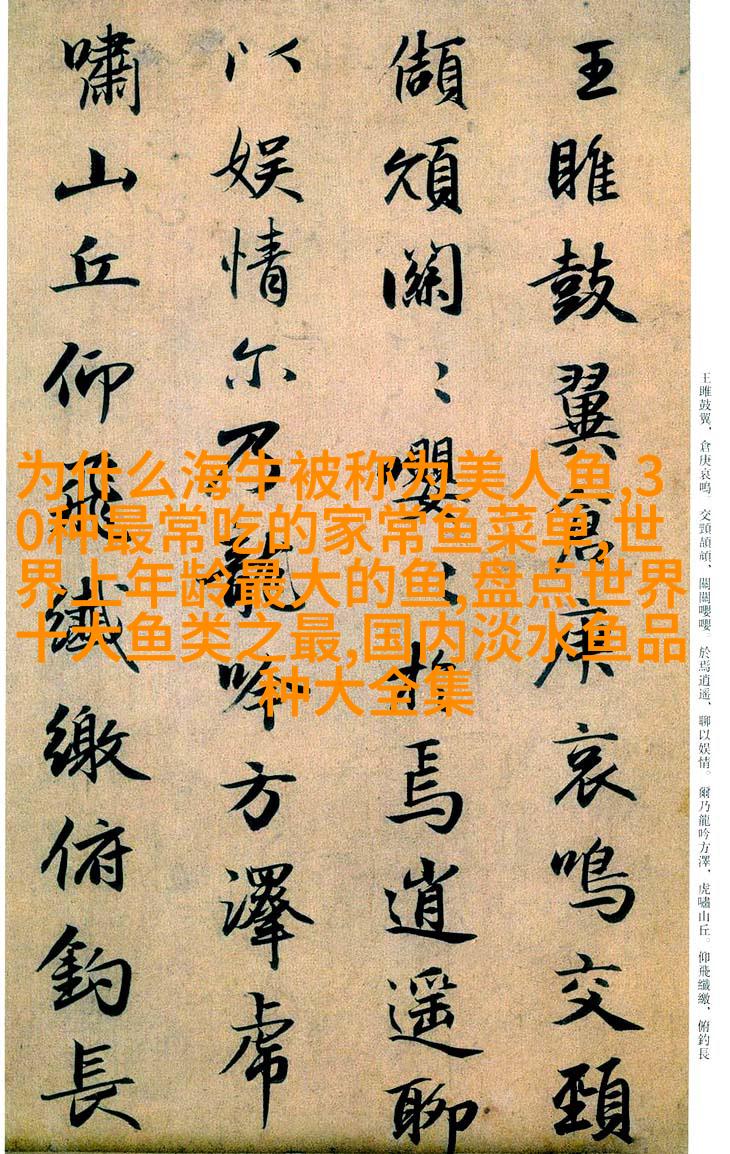 王雎鼓翼倉庚哀鳴交頸
頡頏關〻嚶〻於焉逍遙聊
以娛情尔乃龍吟方澤虎
嘯山丘仰飛纖繳俯釣長
为什么海牛被称为美人鱼,3
0种最常吃的家常鱼菜单,世
界上年龄最大的鱼,盘点世界
十大鱼类之最,国内淡水鱼品
种大全集
王雎鼓翼、倉庚哀鳴。交頸頡頏、關關嚶嚶。於焉逍遥、聊以娱情。爾乃龍吟方澤、虎嘯山丘。仰飛纖繳、俯釣長